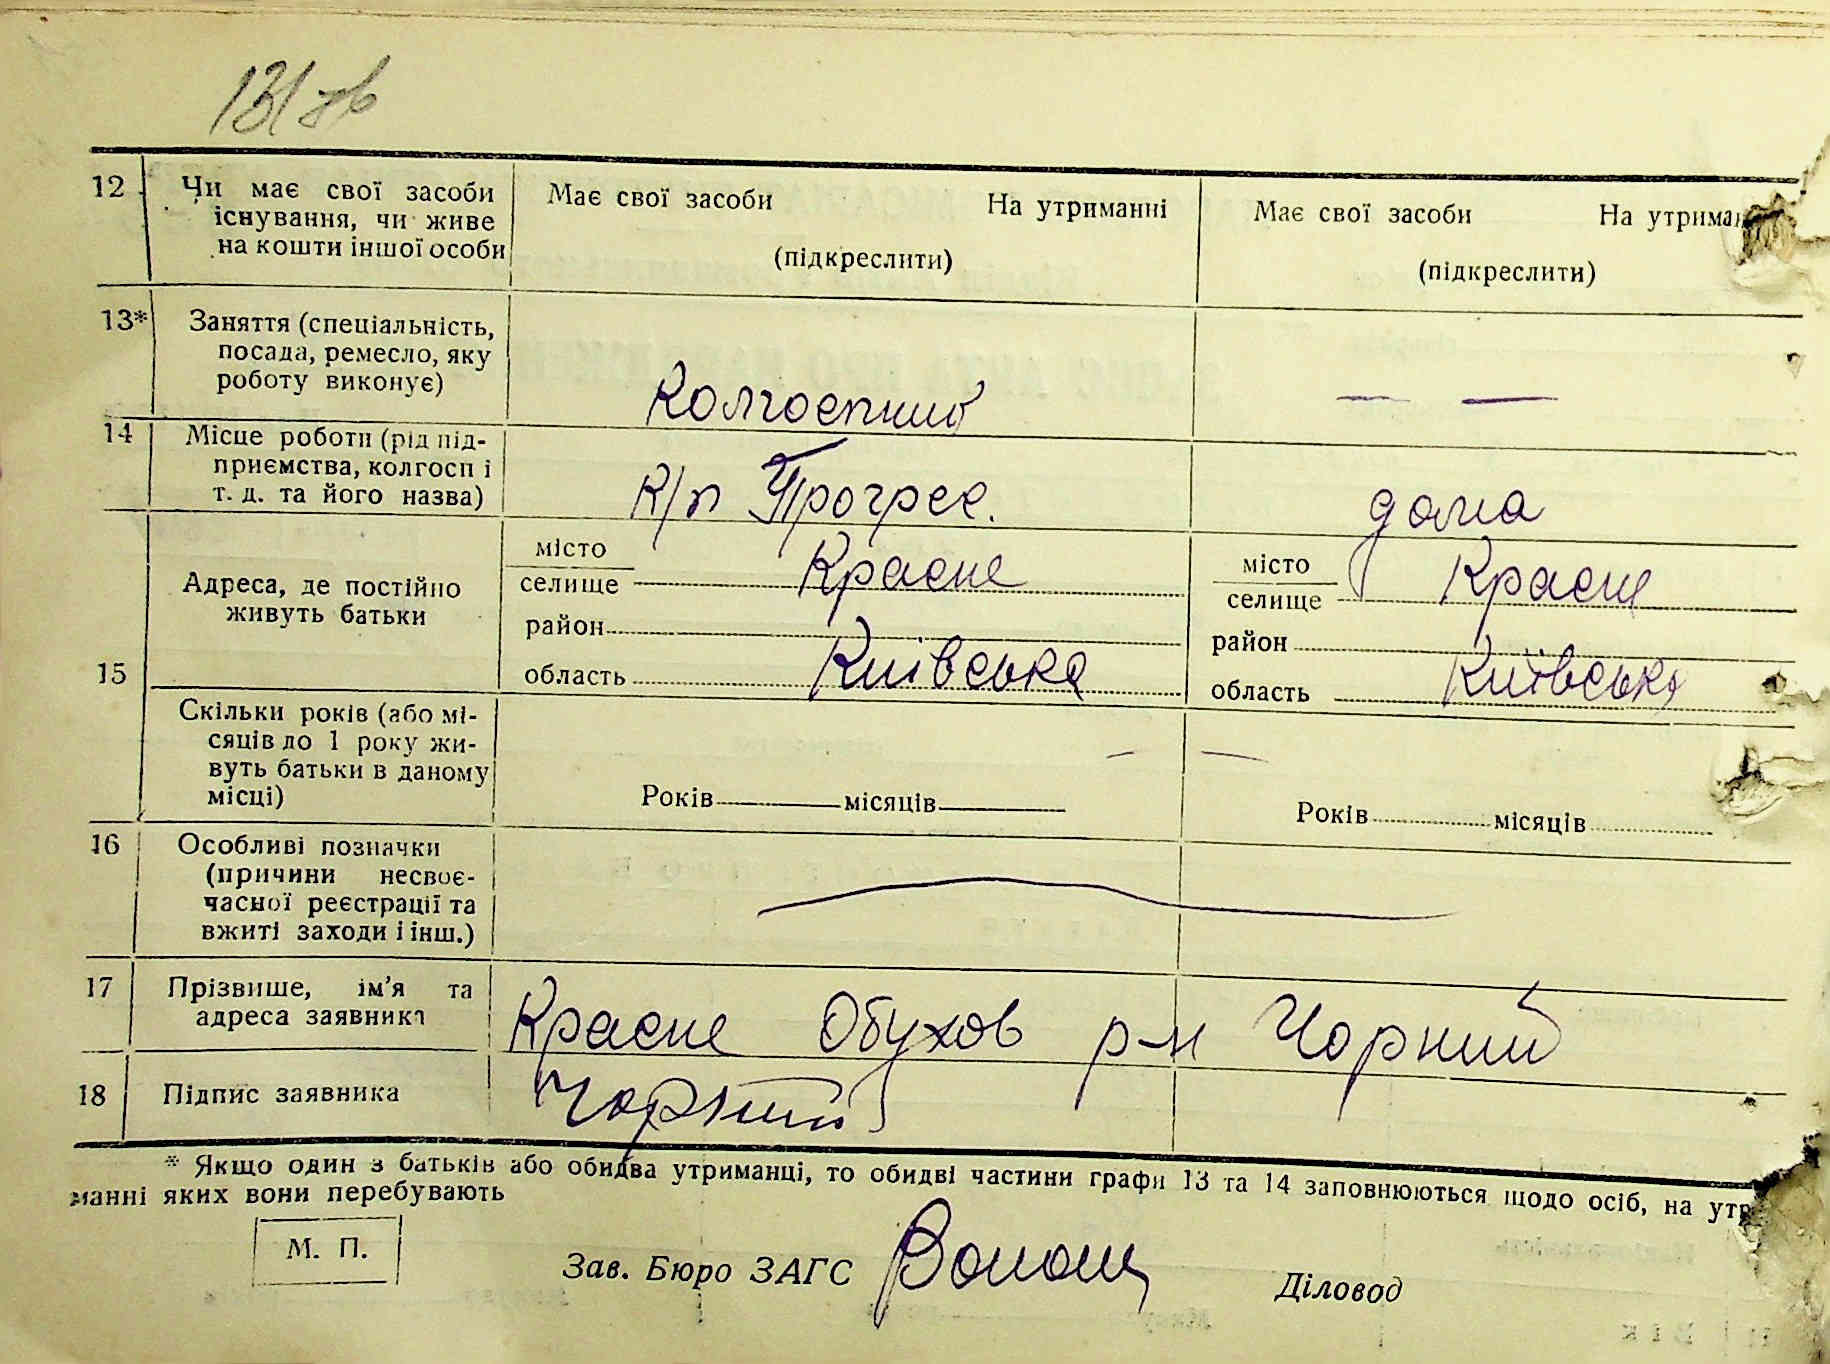 131 зв
12 Чи має свої засоби існування, чи живе на кошти іншої особи
Має свої засоби На утриманні
(підкреслити)
Має свої засоби На утриман
(підкреслити)
13* Заняття (спеціальність, посада, ремесло, яку роботу виконує)
Колгоспник
— —
14 Місце роботи (рід підприємства, колгосп і т. д. та його назва)
К/п Прогрес.
дома
15 Адреса, де постійно живуть батьки
місто
селище Красне
район
область Київська
місто
селище Красне
район
область Київська
Скільки років (або місяців до 1 року живуть батьки в даному місці)
Років місяців
Років місяців
16 Особливі позначки (причини несвоєчасної реєстрації та вжиті заходи і інш.)
17 Прізвище, ім'я та адреса заявника
Красне Обухов р-н Чорний
18 Підпис заявника
Чорний
* Якщо один з батьків або обидва утриманці, то обидві частини графи 13 та 14 заповнюються щодо осіб, на утр
манні яких вони перебувають
М. П.
Зав. Бюро ЗАГС
Діловод